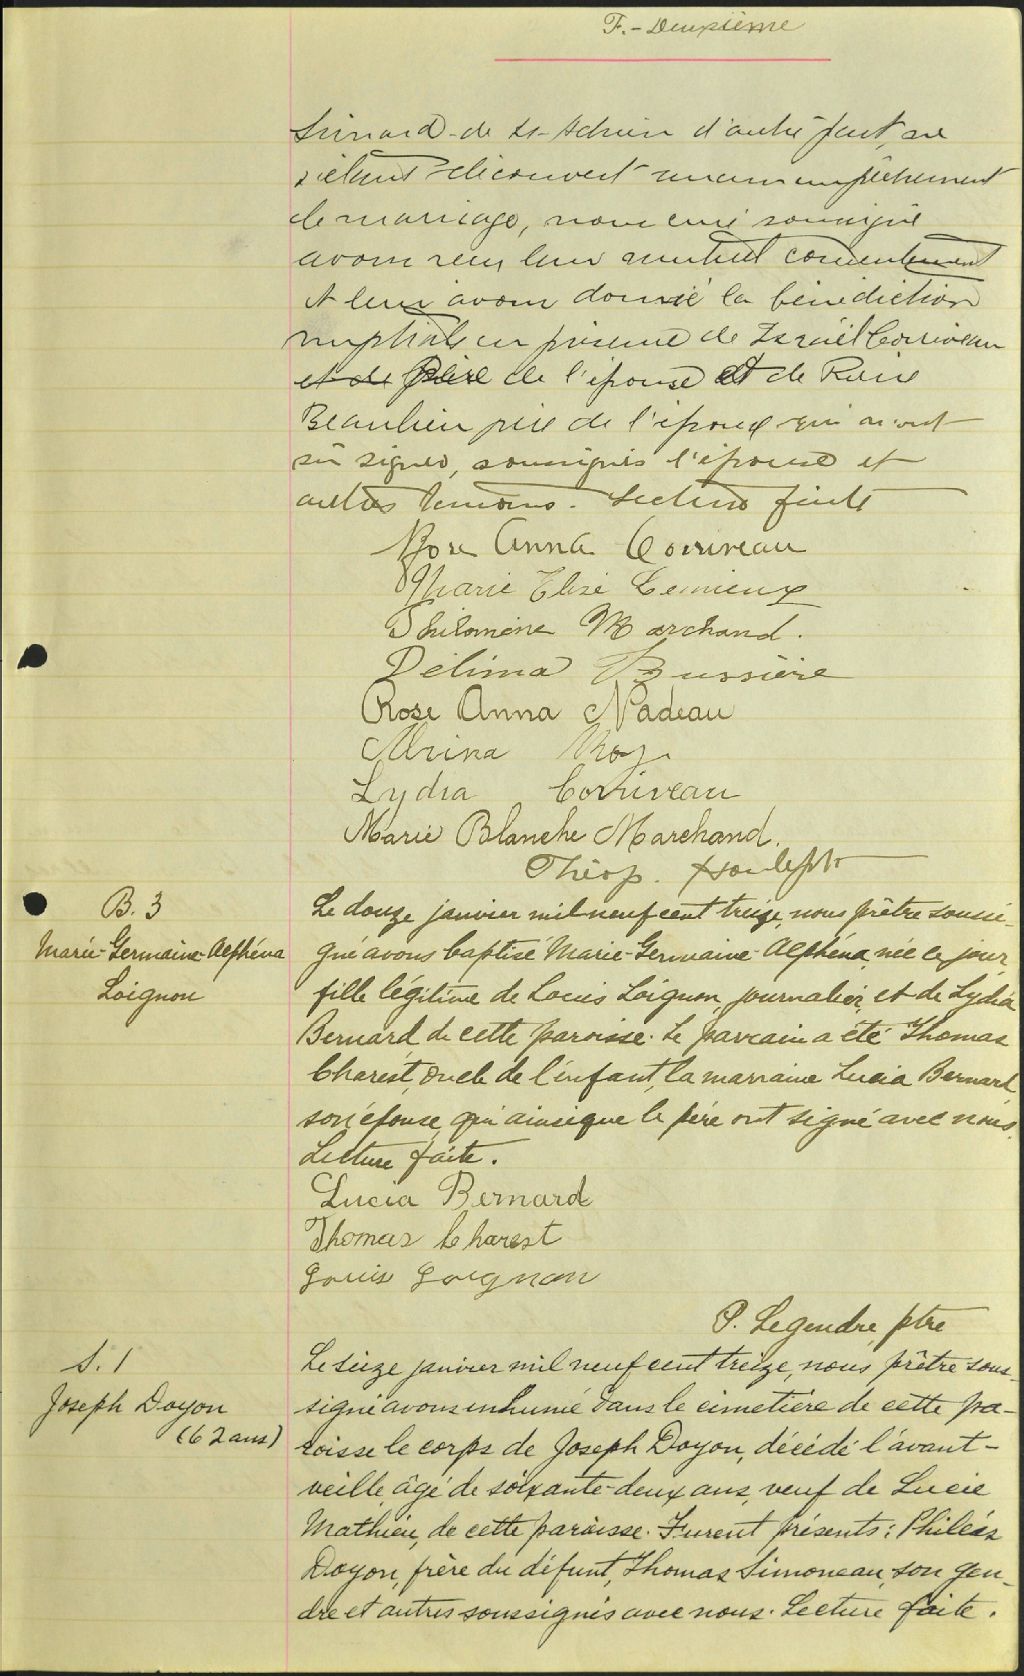 F.- Deuxième
Simard de St-Adrien d'autre part, ne
s'étant découvert aucun empêchement
de mariage, nous curé soussigné
avons reçu leur mutuel consentement
et leur avons donné la bénédiction
nuptiale en présence de Israël Corriveau
et de père de l'épouse et de
Beaulieu père de l'époux qui n'ont
sû signer, soussignés l'épouse et
autres témoins. Lecture faite
Rose Anna Corriveau
Marie Elise Lemieux
Philomène Marchand.
Délima Bussière
Rose Anna Nadeau
Roy
Lydia Corriveau
Marie Blanche Marchand.
Théop.
B. 3
Marie-Germaine-Alphéna
Loignon
Le douze janvier mil neuf cent treize, nous prêtre soussi-
gné avons baptisé Marie-Germaine-Alphéna, née ce jour,
fille légitime de Louis Loignon, journalier, et de Lydia
Bernard de cette paroisse. Le parrain a été Thomas
Charest, oncle de l'enfant, la marraine Lucia Bernard
son épouse, qui ainsi que le père ont signé avec nous.
Lecture faite.
Lucia Bernard
Thomas Charest
Louis Loignon
P. Legendre, ptre
S. 1
Joseph Doyon
(62 ans)
Le seize janvier mil neuf cent treize, nous prêtre sous-
signé avons inhumé dans le cimetière de cette pa-
roisse le corps de Joseph Doyon, décédé l'avant-
veille, âgé de soixante-deux ans, veuf de Lucie
Mathieu, de cette paroisse. Furent présents: Philéas
Doyon, frère du défunt, Thomas Simoneau, son gen-
dre et autres soussignés avec nous. Lecture faite.